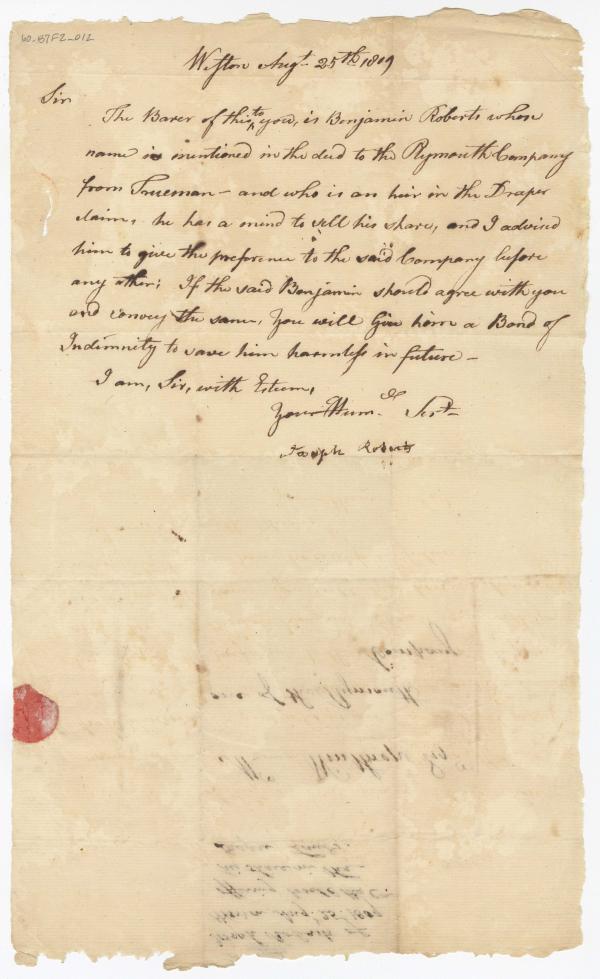 60_B7F2_012
Weston Augt. 25th 1809
Sir
The Barer of this to you, is Benjamin Roberts whose
name is mentioned in the deed to the Plymouth Company
from Trueman - and who is an heir in the Draper
claim, he has a mind to sell his share, and I advised
him to give the preference to the said Company before
any other; If the said Benjamin should agree with you
and convey the same, you will Give him a Bond of
Indemnity to save him harmless in future -
I am, Sir, with Esteem,
Your Humle Servt
Joseph Roberts
Company
one of the Plymouth
Winthrop Esqr